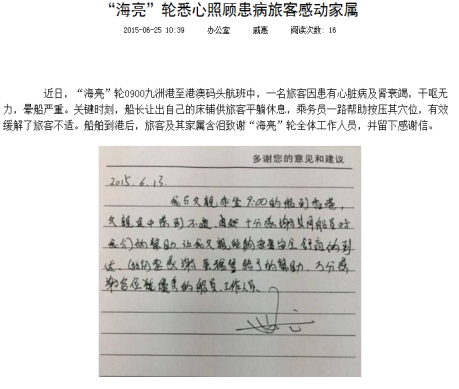 “海亮”轮悉心照顾患病旅客感动家属
2015-06-25 10:39 办公室 戚惠 阅读次数: 16
近日，“海亮”轮0900九洲港至港澳码头航班中，一名旅客因患有心脏病及肾衰竭，干呕无
力，晕船严重。关键时刻，船长让出自己的床铺供旅客平躺休息，乘务员一路帮助按压其穴位，有效
缓解了旅客不适。船舶到港后，旅客及其家属含泪致谢“海亮”轮全体工作人员，并留下感谢信。
多谢您的意见和建议
2015.6.13
父亲乘坐9:00的船到香港，
父亲在中感到不适，十分感谢船员对
我们的帮助，让我父亲能够安全舒适的到
达。感谢的帮助，万分感
谢各位优秀的船员、工作人员。